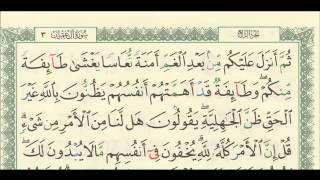 سورة آل عمران ٣ الجزء الرابع
ثُمَّ أَنزَلَ عَلَيْكُم مِّنۢ بَعْدِ ٱلْغَمِّ أَمَنَةً نُّعَاسًا يَغْشَىٰ طَآئِفَةً
مِّنكُمْ ۖ وَطَآئِفَةٌ قَدْ أَهَمَّتْهُمْ أَنفُسُهُمْ يَظُنُّونَ بِٱللَّهِ غَيْرَ
ٱلْحَقِّ ظَنَّ ٱلْجَٰهِلِيَّةِ ۖ يَقُولُونَ هَل لَّنَا مِنَ ٱلْأَمْرِ مِن شَىْءٍ ۗ
قُلْ إِنَّ ٱلْأَمْرَ كُلَّهُۥ لِلَّهِ ۗ يُخْفُونَ فِىٓ أَنفُسِهِم مَّا لَا يُبْدُونَ لَكَ ۖ